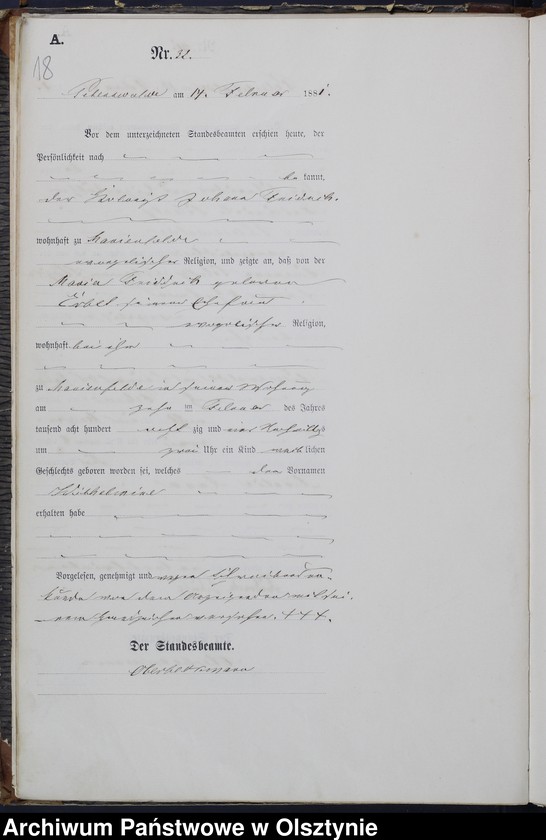 A.
18
Nr. 22.
am 14. Februar 1881.
Vor dem unterzeichneten Standesbeamten erschien heute, der
Persönlichkeit nach
be kannt,
der Johann Friedrich
wohnhaft zu Marienfelde
evangelischer Religion, und zeigte an, daß von der
Maria geborenen
seiner Ehefrau
evangelischer Religion,
wohnhaft bei ihm
zu Marienfelde in seiner Wohnung
am zehn ten Februar des Jahres
tausend acht hundert acht zig und eins Nachmittags
um zwei Uhr ein Kind weib lichen
Geschlechts geboren worden sei, welches den Vornamen
Wilhelmine
erhalten habe
Vorgelesen, genehmigt und wegen Schreibensun-
kunde von dem Anzeigenden mit sei-
nem Handzeichen versehen. +++.
Der Standesbeamte.
Archiwum Państwowe w Olsztynie